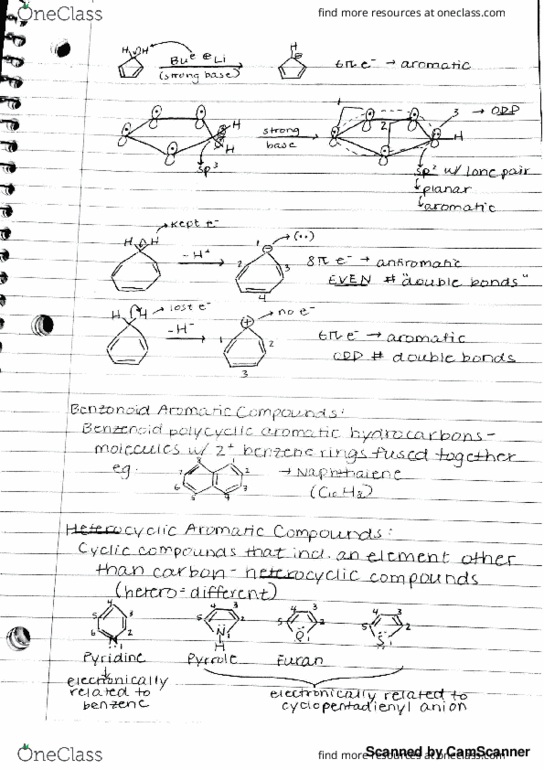 OneClass
find more resources at oneclass.com
H H
Bu⊖ ⊕Li
(strong base)
H
6πe⁻ → aromatic
H
H
sp³
strong
base
1
2
3 → ODD
H
sp² w/ lone pair
planar
aromatic
→ kept e⁻
H H
-H⁺
1 → (··)
2
3
4
8πe⁻ → antiaromatic
EVEN # "double bonds"
H H → lost e⁻
-H⁻
→ no e⁻
1
2
3
6πe⁻ → aromatic
ODD # double bonds
Benzonoid Aromatic Compounds:
Benzenoid polycyclic aromatic hydrocarbons -
molecules w/ 2⁺ benzene rings fused together
eg.
→ Naphthalene
Heterocyclic Aromatic Compounds:
Cyclic compounds that incl. an element other
than carbon - heterocyclic compounds
(hetero = different)
4
5 3
6 2
N
1
4 3
5 2
N 1
H
4 3
5 2
O
1
4 3
5 2
S
1
Pyridine
Pyrrole
Furan
electronically
related to
benzene
electronically related to
cyclopentadienyl anion
OneClass
find more resources at oneclass.com
Scanned by CamScanner